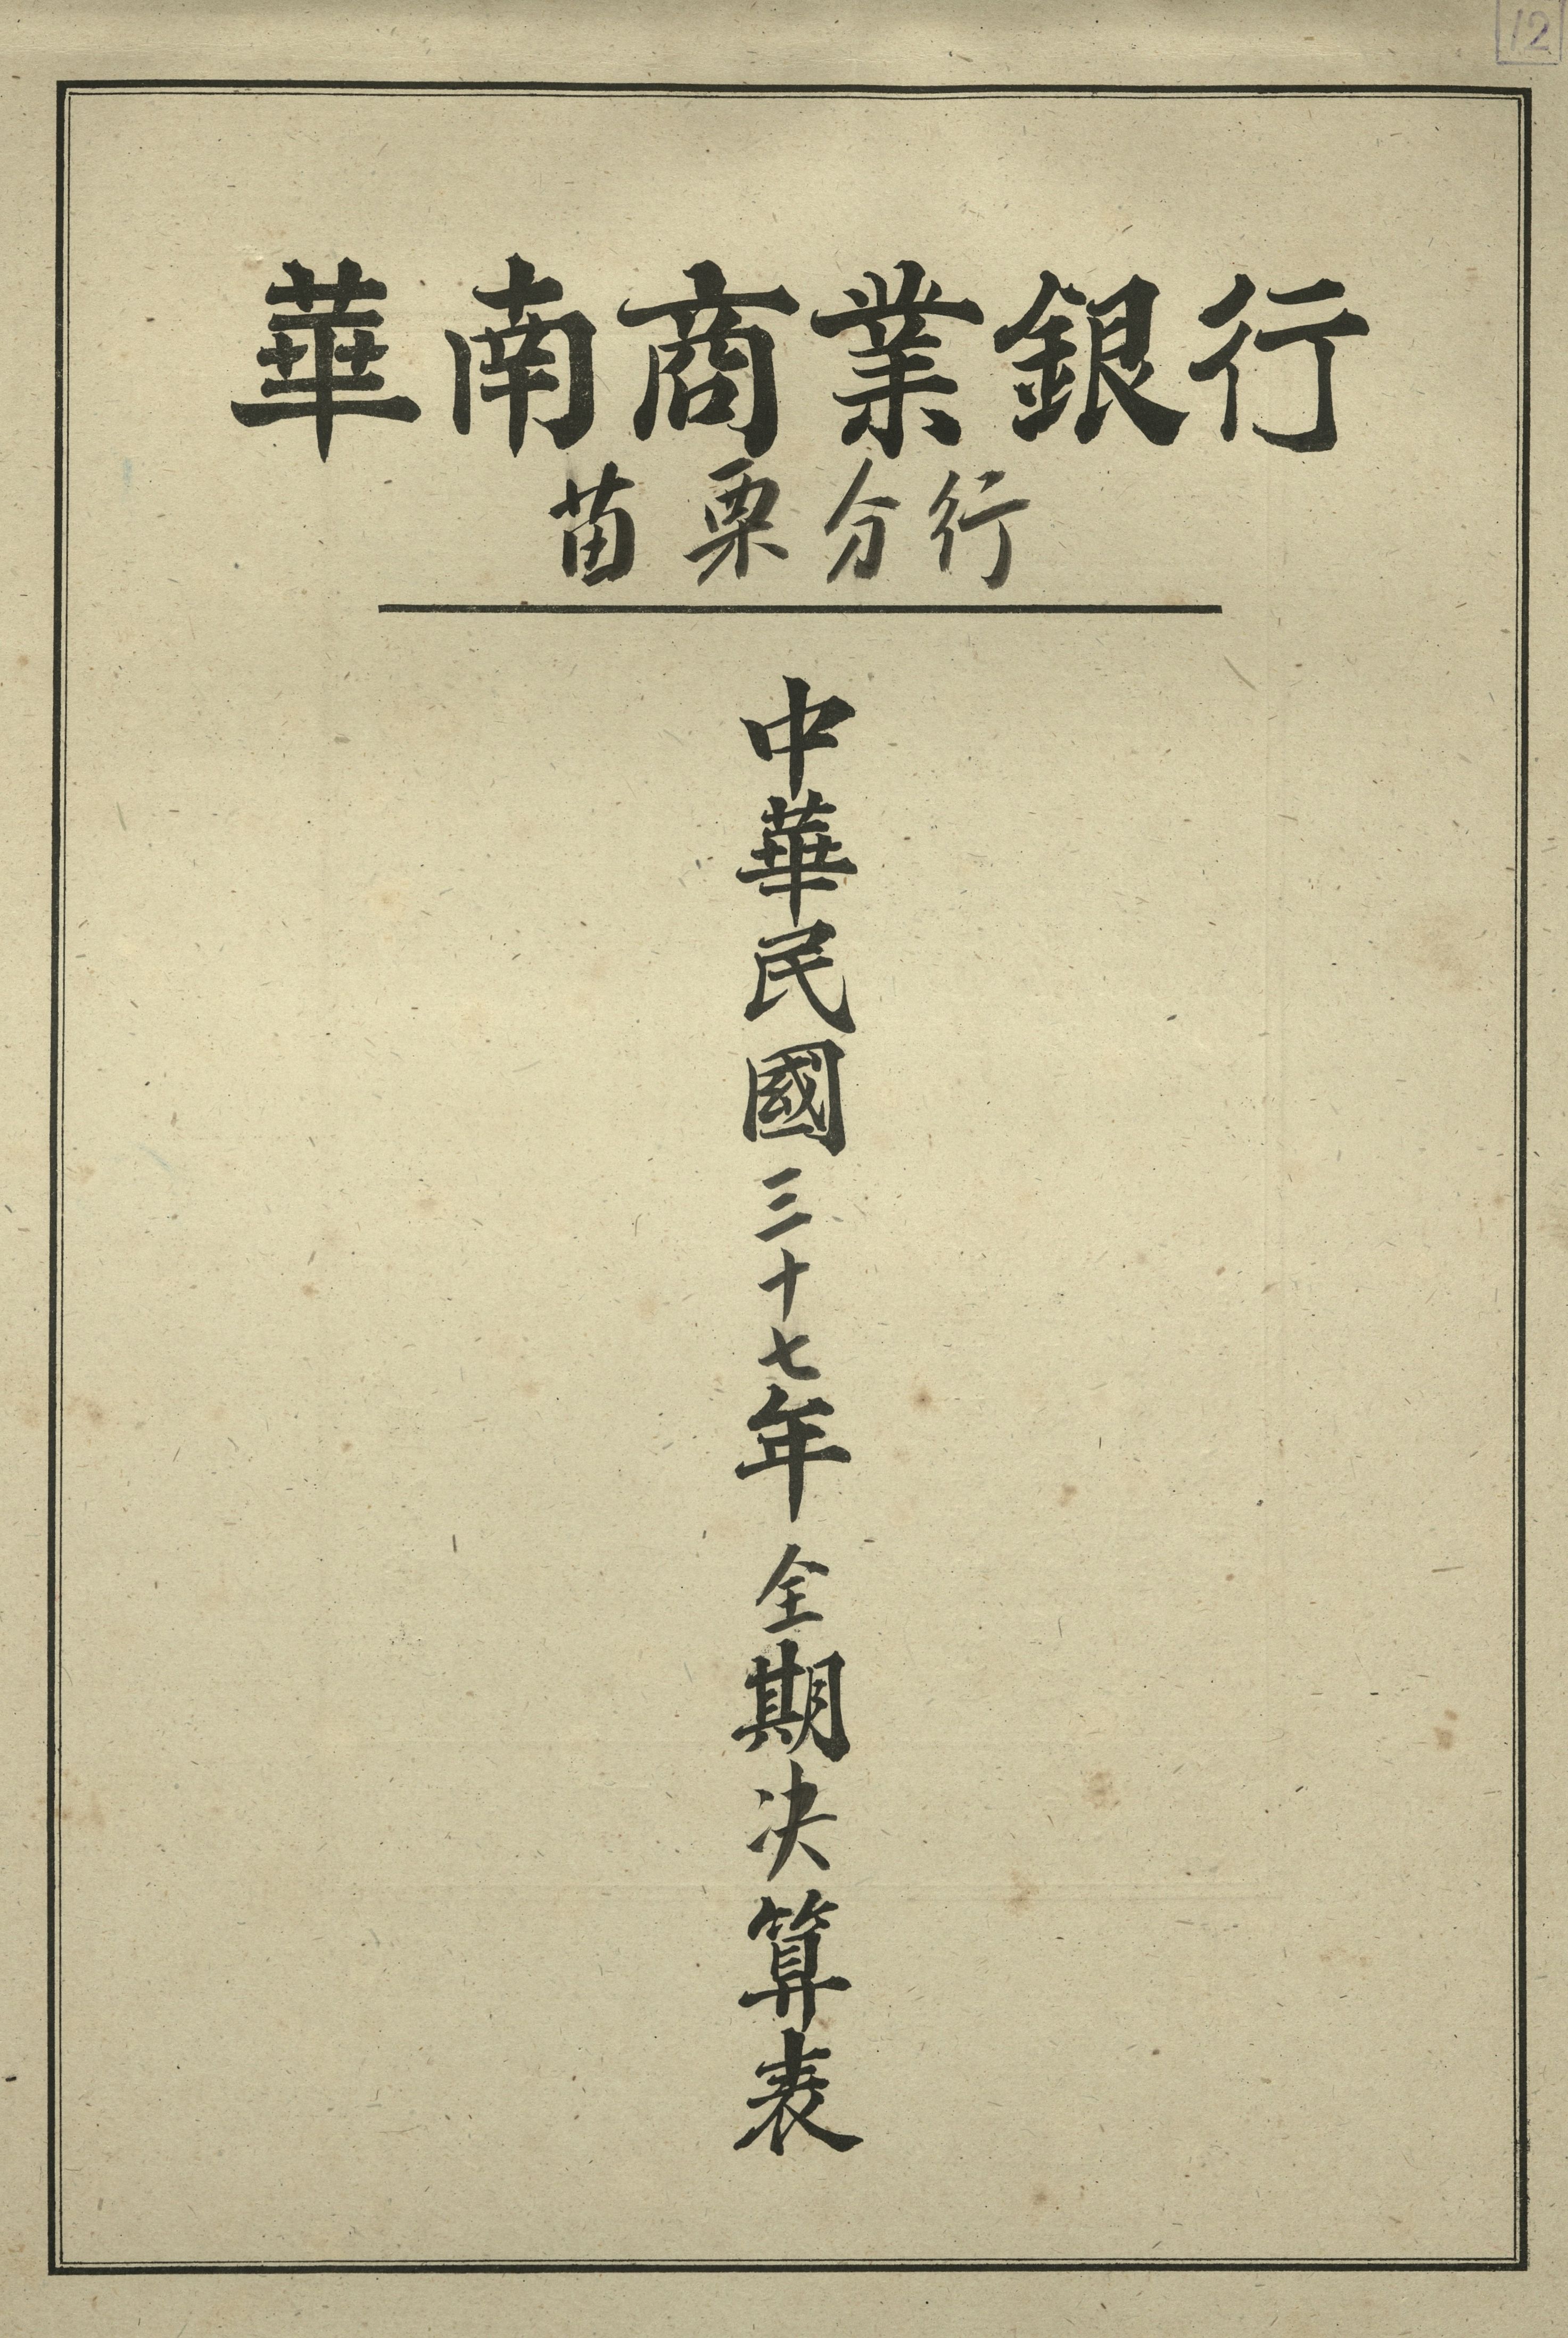 12
華南商業銀行
苗栗分行
中華民國三十七年全期决算表